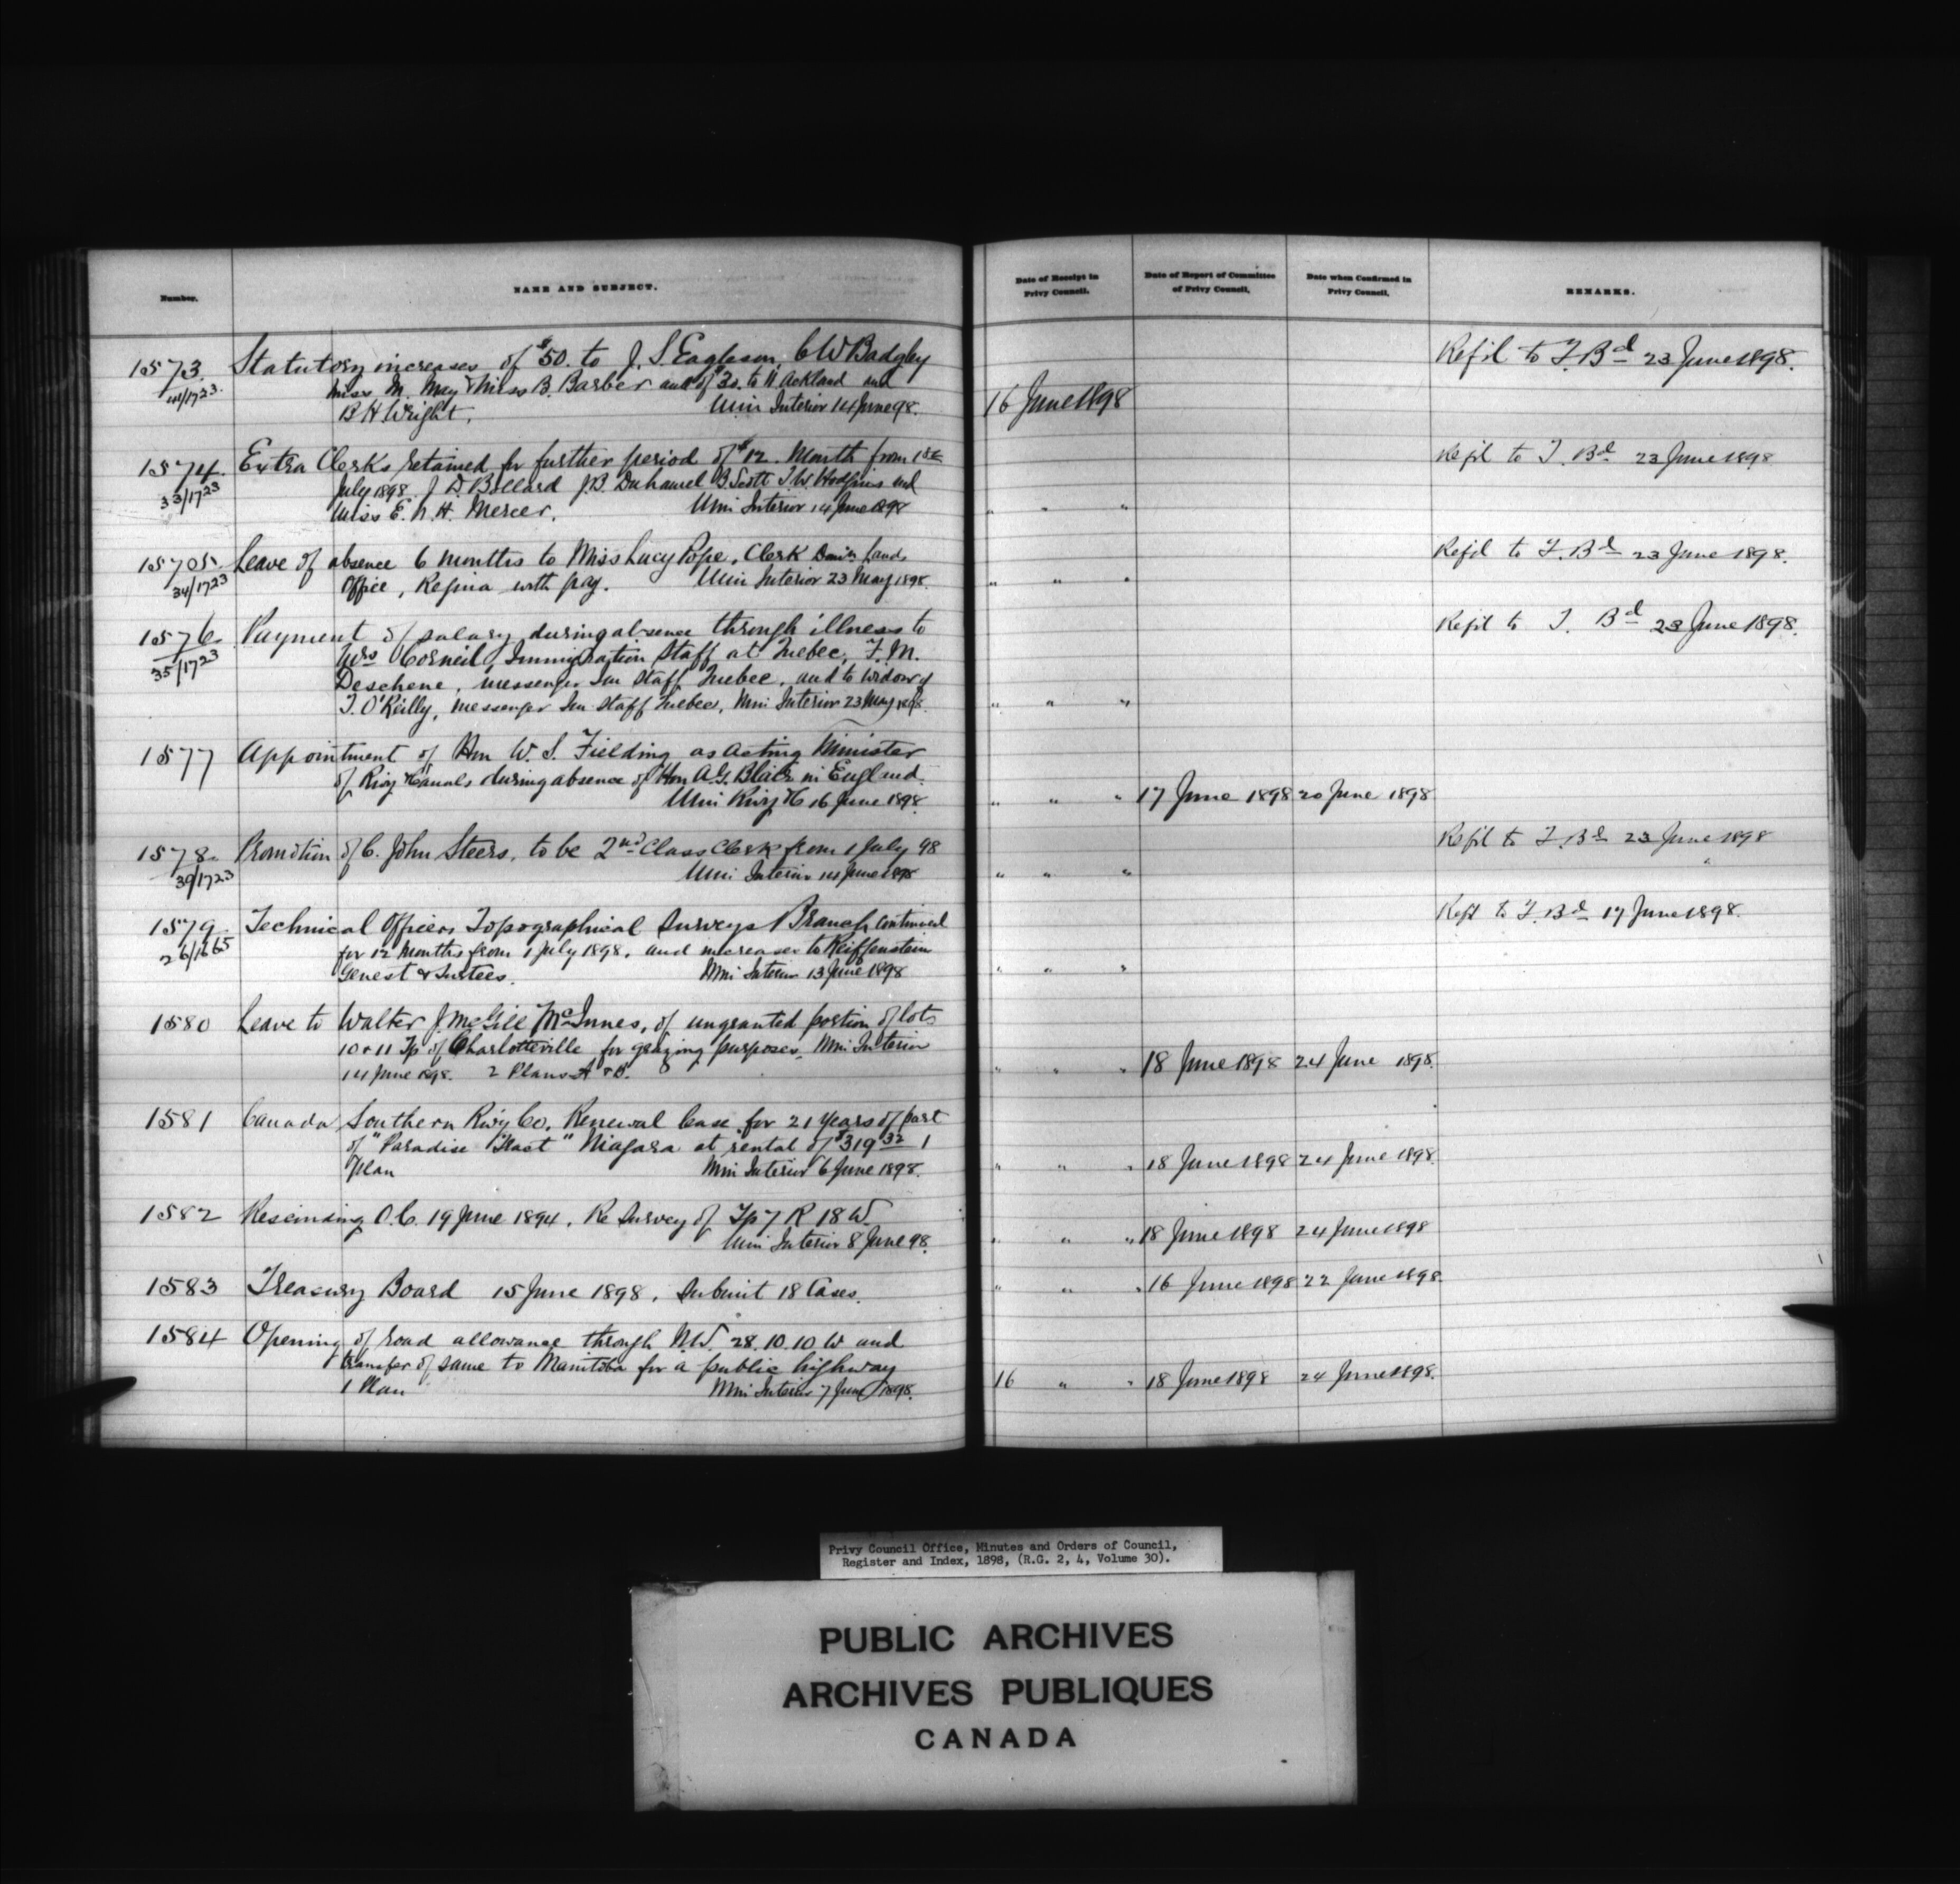 Number.
NAME AND SUBJECT.
Date of Receipt in Privy Council.
Date of Report of Committee of Privy Council.
Date when Confirmed in Privy Council.
REMARKS.
1573. Statutory increases of $50. to J. S. Eagleson, C W Badgley Ref'd to T. Bd 23 June 1898.
/1723. Miss M. May & Miss B. Barber and of $30. to N. Ackland and
B H Wright. Min Interior 14 June 98. 16 June 1898
1574. Extra Clerks retained for further period of 12. Month from 1st Ref'd to T. Bd 23 June 1898
33/1723 July 1898. J D. Bollard J.B. Duhamel B Scott T. W Hodgins and
Miss E. N. H. Mercer. Min Interior 14 June 1898 " " "
1575. Leave of absence 6 months to Miss Lucy Pope, Clerk Domin Lands Ref'd to T. Bd 23 June 1898.
34/1723 Office, Regina with pay. Min Interior 23 May 1898. " " "
1576. Payment of salary during absence through illness to Ref'd to T. Bd 23 June 1898.
35/1723 Mrs Corneil, Immigration Staff at Quebec, F. M.
Deschene, messenger Im Staff Quebec, and to widow of
T. O'Reilly, Messenger Im Staff Quebec, Min Interior 23 May 1898. " " "
1577 Appointment of Hon W. S. Fielding as acting Minister
of Rwy & Canals during absence of Hon A.G. Blair in England.
Min Rwy & C 16 June 1898. " " " 17 June 1898 20 June 1898
1578. Promotion of C. John Steers, to be 2nd Class Clerk from 1 July 98 Ref'd to T. Bd 23 June 1898
39/1723 Min Interior 14 June 1898 " " "
1579. Technical Officers Topographical Surveys Branch, continued Refd to T. Bd 17 June 1898.
26/1665 for 12 months from 1 July 1898, and increases to Reiffenstein
Genest & Surtees. Min Interior 13 June 1898 " " "
1580 Leave to Walter J. McGill McInnes, of ungranted portion of lots
10 & 11 Tp of Charlotteville for grazing purposes, Min Interior
14 June 1898. 2 Plans A & B. " " " 18 June 1898 24 June 1898.
1581 Canada Southern Rwy Co. Renewal lease for 21 years of part
of "Paradise Tract" Niagara at rental of $319 32 1
plan Min Interior 6 June 1898. " " " 18 June 1898 24 June 1898.
1582 Rescinding O. C. 19 June 1894. Re Survey of Tp 7 R 18 W.
Min Interior 8 June 98. " " " 18 June 1898 24 June 1898
1583 Treasury Board 15 June 1898, Submit 18 Cases. " " " 16 June 1898 22 June 1898.
1584 Opening of road allowance through N.W. 28. 10. 10 W and
transfer of same to Manitoba for a public highway
1 Plan Min Interior 7 June 1898. 16 " " 18 June 1898 24 June 1898.
Privy Council Office, Minutes and Orders of Council,
Register and Index, 1898, (R.G. 2, 4, Volume 30).
PUBLIC ARCHIVES
ARCHIVES PUBLIQUES
CANADA